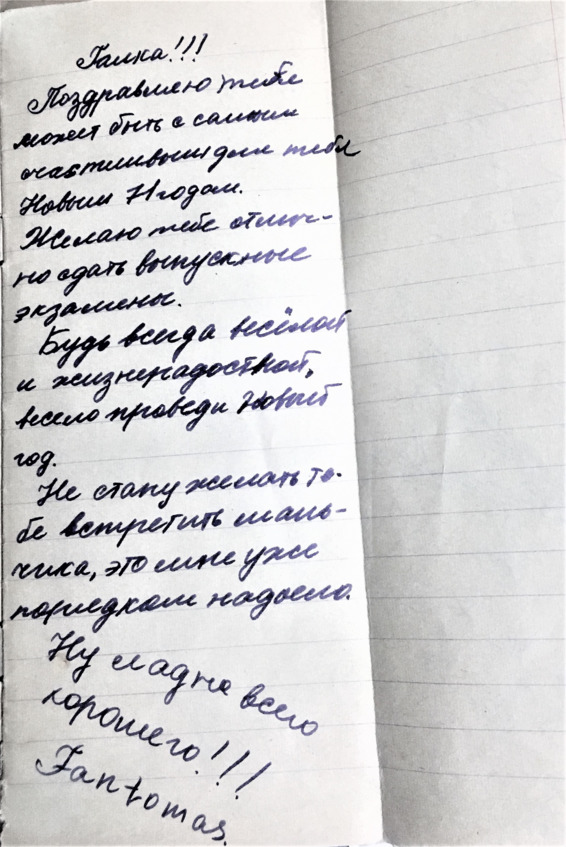 Галка!!!
Поздравляю тебя
может быть с самым
счастливым для тебя
Новым 71 годом.
Желаю тебе отлич-
но сдать выпускные
экзамены.
Будь всегда весёлой
и жизнерадостной,
весело проведи Новый
год.
Не стану желать те-
бе встретить маль-
чика, это мне уже
порядком надоело.
Ну ладно всего
хорошего!!!
Fantomas.